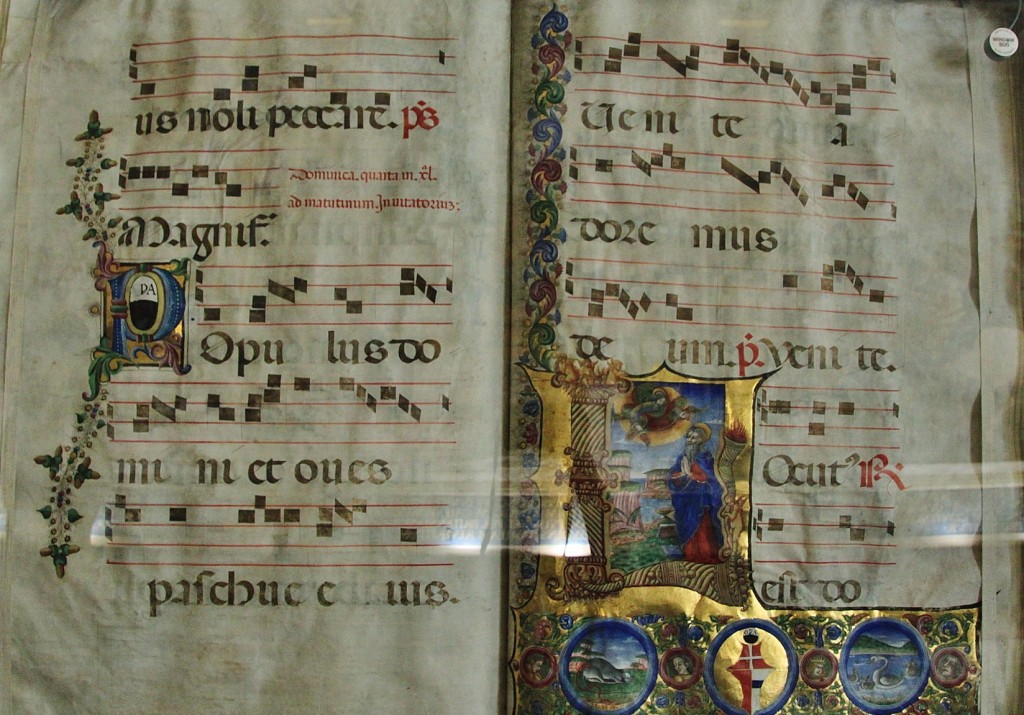 us noli peccare. ps
Domiica. quarta. in. xl.
ad matutinum. Inuitatoriuz:
Magnif.
P.A
POpu lus do
mi ni et oues
paschue e ius.
Ueni te a
dore mus
de um. p. Veni te.
Locut' R.
est do